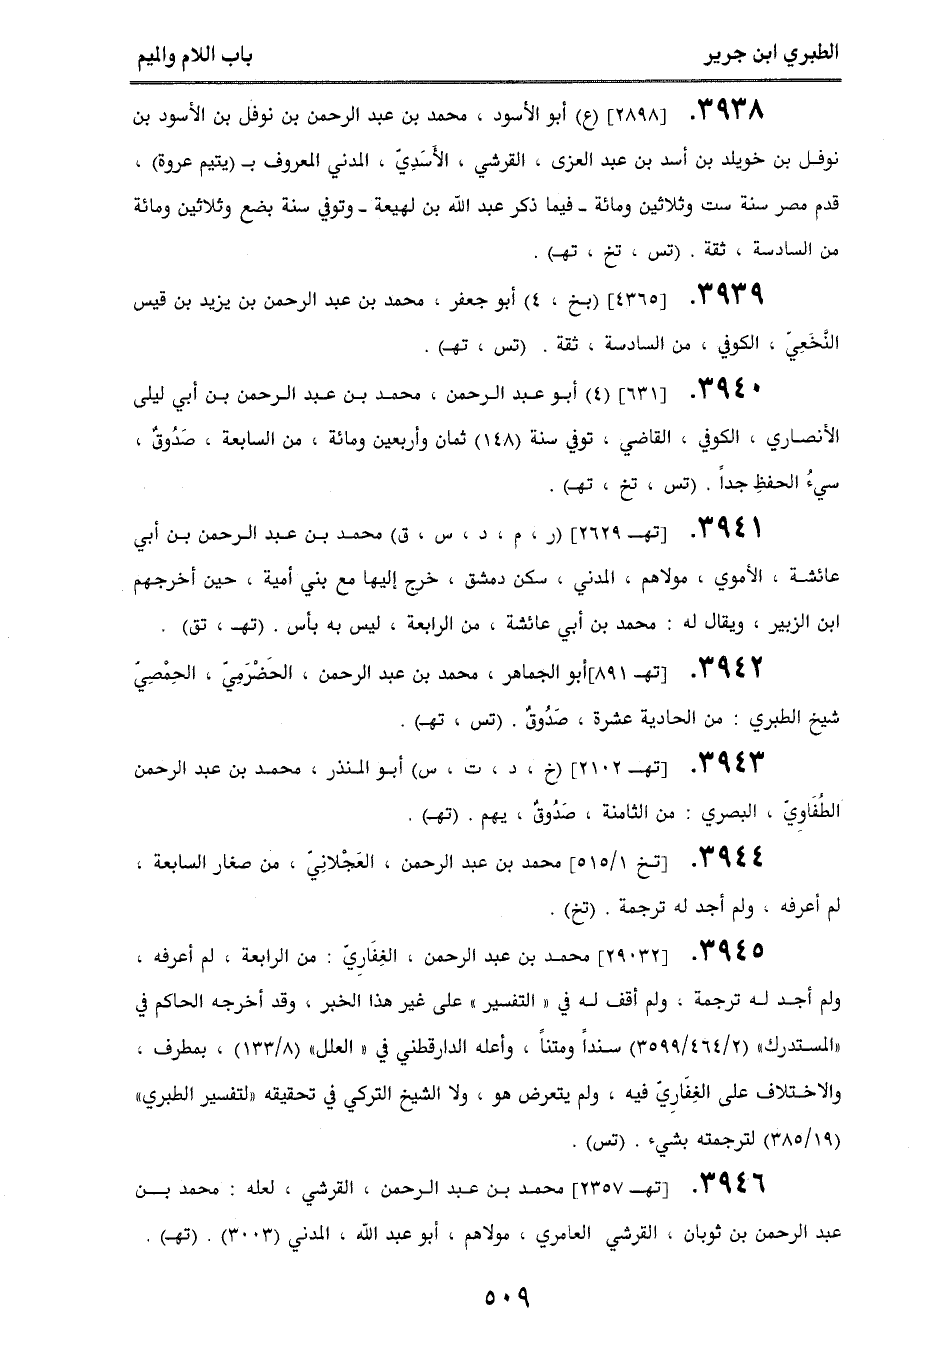 الطبري ابن جرير
باب اللام والميم
٣٩٣٨. [٢٨٩٨] (ع) أبو الأسود ، محمد بن عبد الرحمن بن نوفل بن الأسود بن
نوفل بن خويلد بن أسد بن عبد العزى ، القرشي ، الأَسَدِيّ ، المدني المعروف بـ (يتيم عروة) ،
قدم مصر سنة ست وثلاثين ومائة ـ فيما ذكر عبد الله بن لهيعة ـ وتوفي سنة بضع وثلاثين ومائة
من السادسة ، ثقة . (تس ، تخ ، تهـ) .
٣٩٣٩. [٤٣٦٥] (بخ ، ٤) أبو جعفر ، محمد بن عبد الرحمن بن يزيد بن قيس
النَّخَعِيّ ، الكوفي ، من السادسة ، ثقة . (تس ، تهـ) .
٣٩٤٠. [٦٣١] (٤) أبو عبد الرحمن ، محمد بن عبد الرحمن بن أبي ليلى
الأنصاري ، الكوفي ، القاضي ، توفي سنة (١٤٨) ثمان وأربعين ومائة ، من السابعة ، صَدُوقٌ ،
سيءُ الحفظِ جداً . (تس ، تخ ، تهـ) .
٣٩٤١. [تهـ ٢٦٢٩] (ر ، م ، د ، س ، ق) محمد بن عبد الرحمن بن أبي
عائشة ، الأموي ، مولاهم ، المدني ، سكن دمشق ، خرج إليها مع بني أمية ، حين أخرجهم
ابن الزبير ، ويقال له : محمد بن أبي عائشة ، من الرابعة ، ليس به بأس . (تهـ ، تق) .
٣٩٤٢. [تهـ ٨٩١]أبو الجماهر ، محمد بن عبد الرحمن ، الحَضْرَمِيّ ، الحِمْصِيّ
شيخ الطبري : من الحادية عشرة ، صَدُوقٌ . (تس ، تهـ) .
٣٩٤٣. [تهـ ٢١٠٢] (خ ، د ، ت ، س) أبو المنذر ، محمد بن عبد الرحمن
الطُفَاوِيّ ، البصري : من الثامنة ، صَدُوقٌ ، يهم . (تهـ) .
٣٩٤٤. [تخ ٥١٥/١] محمد بن عبد الرحمن ، العَجْلانِيّ ، من صغار السابعة ،
لم أعرفه ، ولم أجد له ترجمة . (تخ) .
٣٩٤٥. [٢٩٠٣٢] محمد بن عبد الرحمن ، الغِفَارِيّ : من الرابعة ، لم أعرفه ،
ولم أجد له ترجمة ، ولم أقف له في « التفسير » على غير هذا الخبر ، وقد أخرجه الحاكم في
«المستدرك» (٣٥٩٩/٤٦٤/٢) سنداً ومتناً ، وأعله الدارقطني في « العلل» (١٣٣/٨) ، بمطرف ،
والاختلاف على الغِفَارِيّ فيه ، ولم يتعرض هو ، ولا الشيخ التركي في تحقيقه «لتفسير الطبري»
(٣٨٥/١٩) لترجمته بشيء . (تس) .
٣٩٤٦. [تهـ ٢٣٥٧] محمد بن عبد الرحمن ، القرشي ، لعله : محمد بن
عبد الرحمن بن ثوبان ، القرشي العامري ، مولاهم ، أبو عبد الله ، المدني (٣٠٠٣) . (تهـ) .
٥٠٩